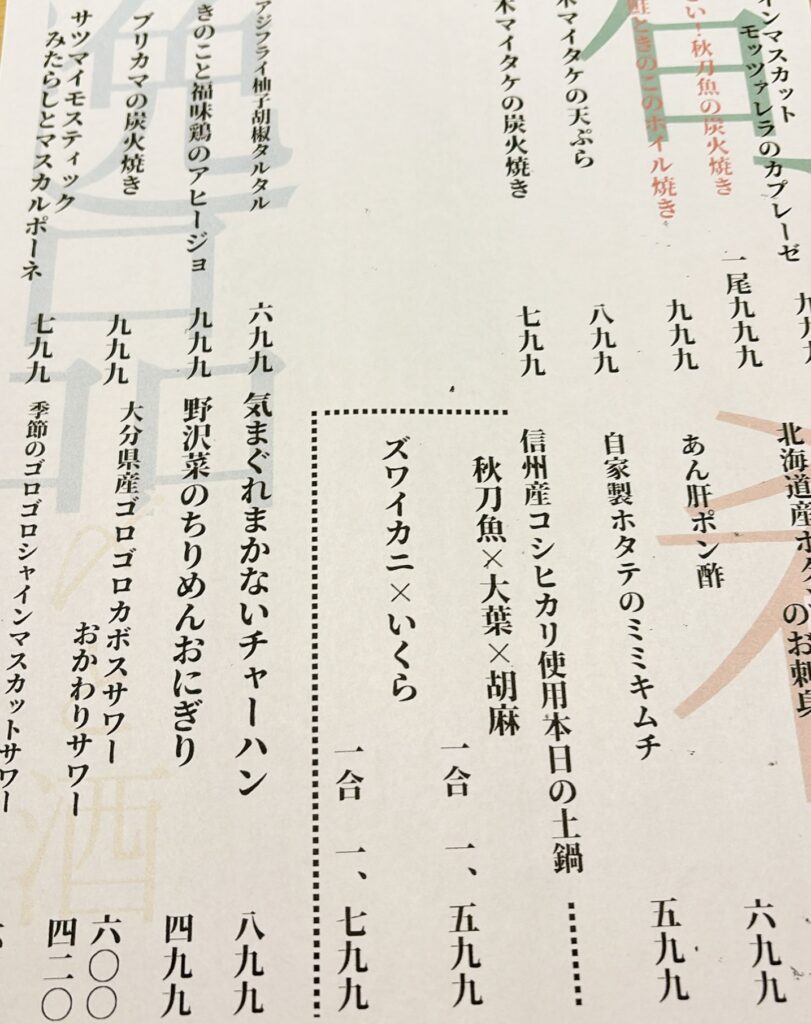 インマスカット
モッツァレラのカプレーゼ
さい！秋刀魚の炭火焼き
一尾九九九
鮭ときのこのホイル焼き
九九九
木マイタケの天ぷら
八九九
木マイタケの炭火焼き
七九九
アジフライ柚子胡椒タルタル
六九九
きのこと福味鶏のアヒージョ
九九九
ブリカマの炭火焼き
九九九
サツマイモスティック
みたらしとマスカルポーネ
七九九
北海道産
のお刺身
あん肝ポン酢
六九九
自家製ホタテのミミキムチ
五九九
信州産コシヒカリ使用本日の土鍋
秋刀魚×大葉×胡麻
一合 一、五九九
ズワイカニ×いくら
一合 一、七九九
気まぐれまかないチャーハン
八九九
野沢菜のちりめんおにぎり
四九九
大分県産ゴロゴロカボスサワー
六〇〇
おかわりサワー
四二〇
季節のゴロゴロシャインマスカットサワー
酒